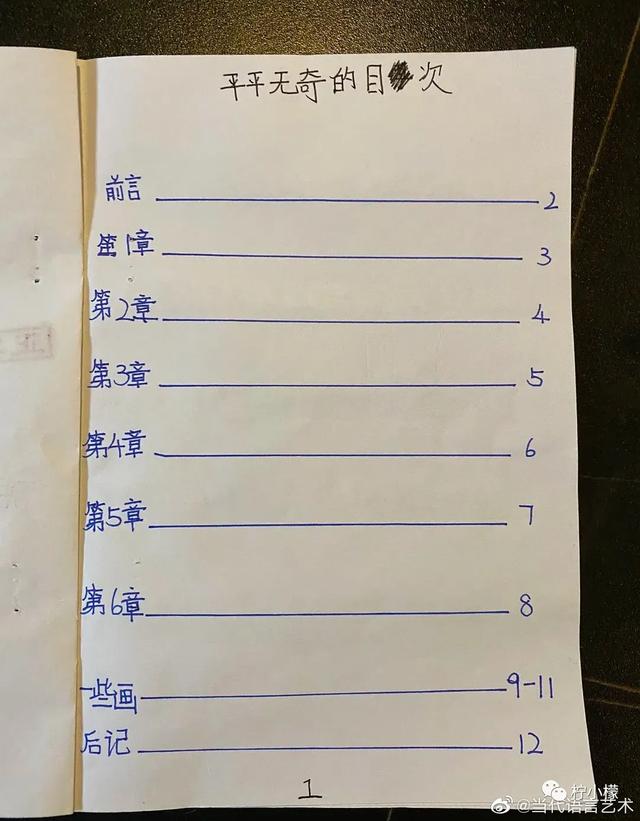 平平无奇的目次
前言 2
第1章 3
第2章 4
第3章 5
第4章 6
第5章 7
第6章 8
一些画 9-11
后记 12
1
柠小檬
@当代语言艺术